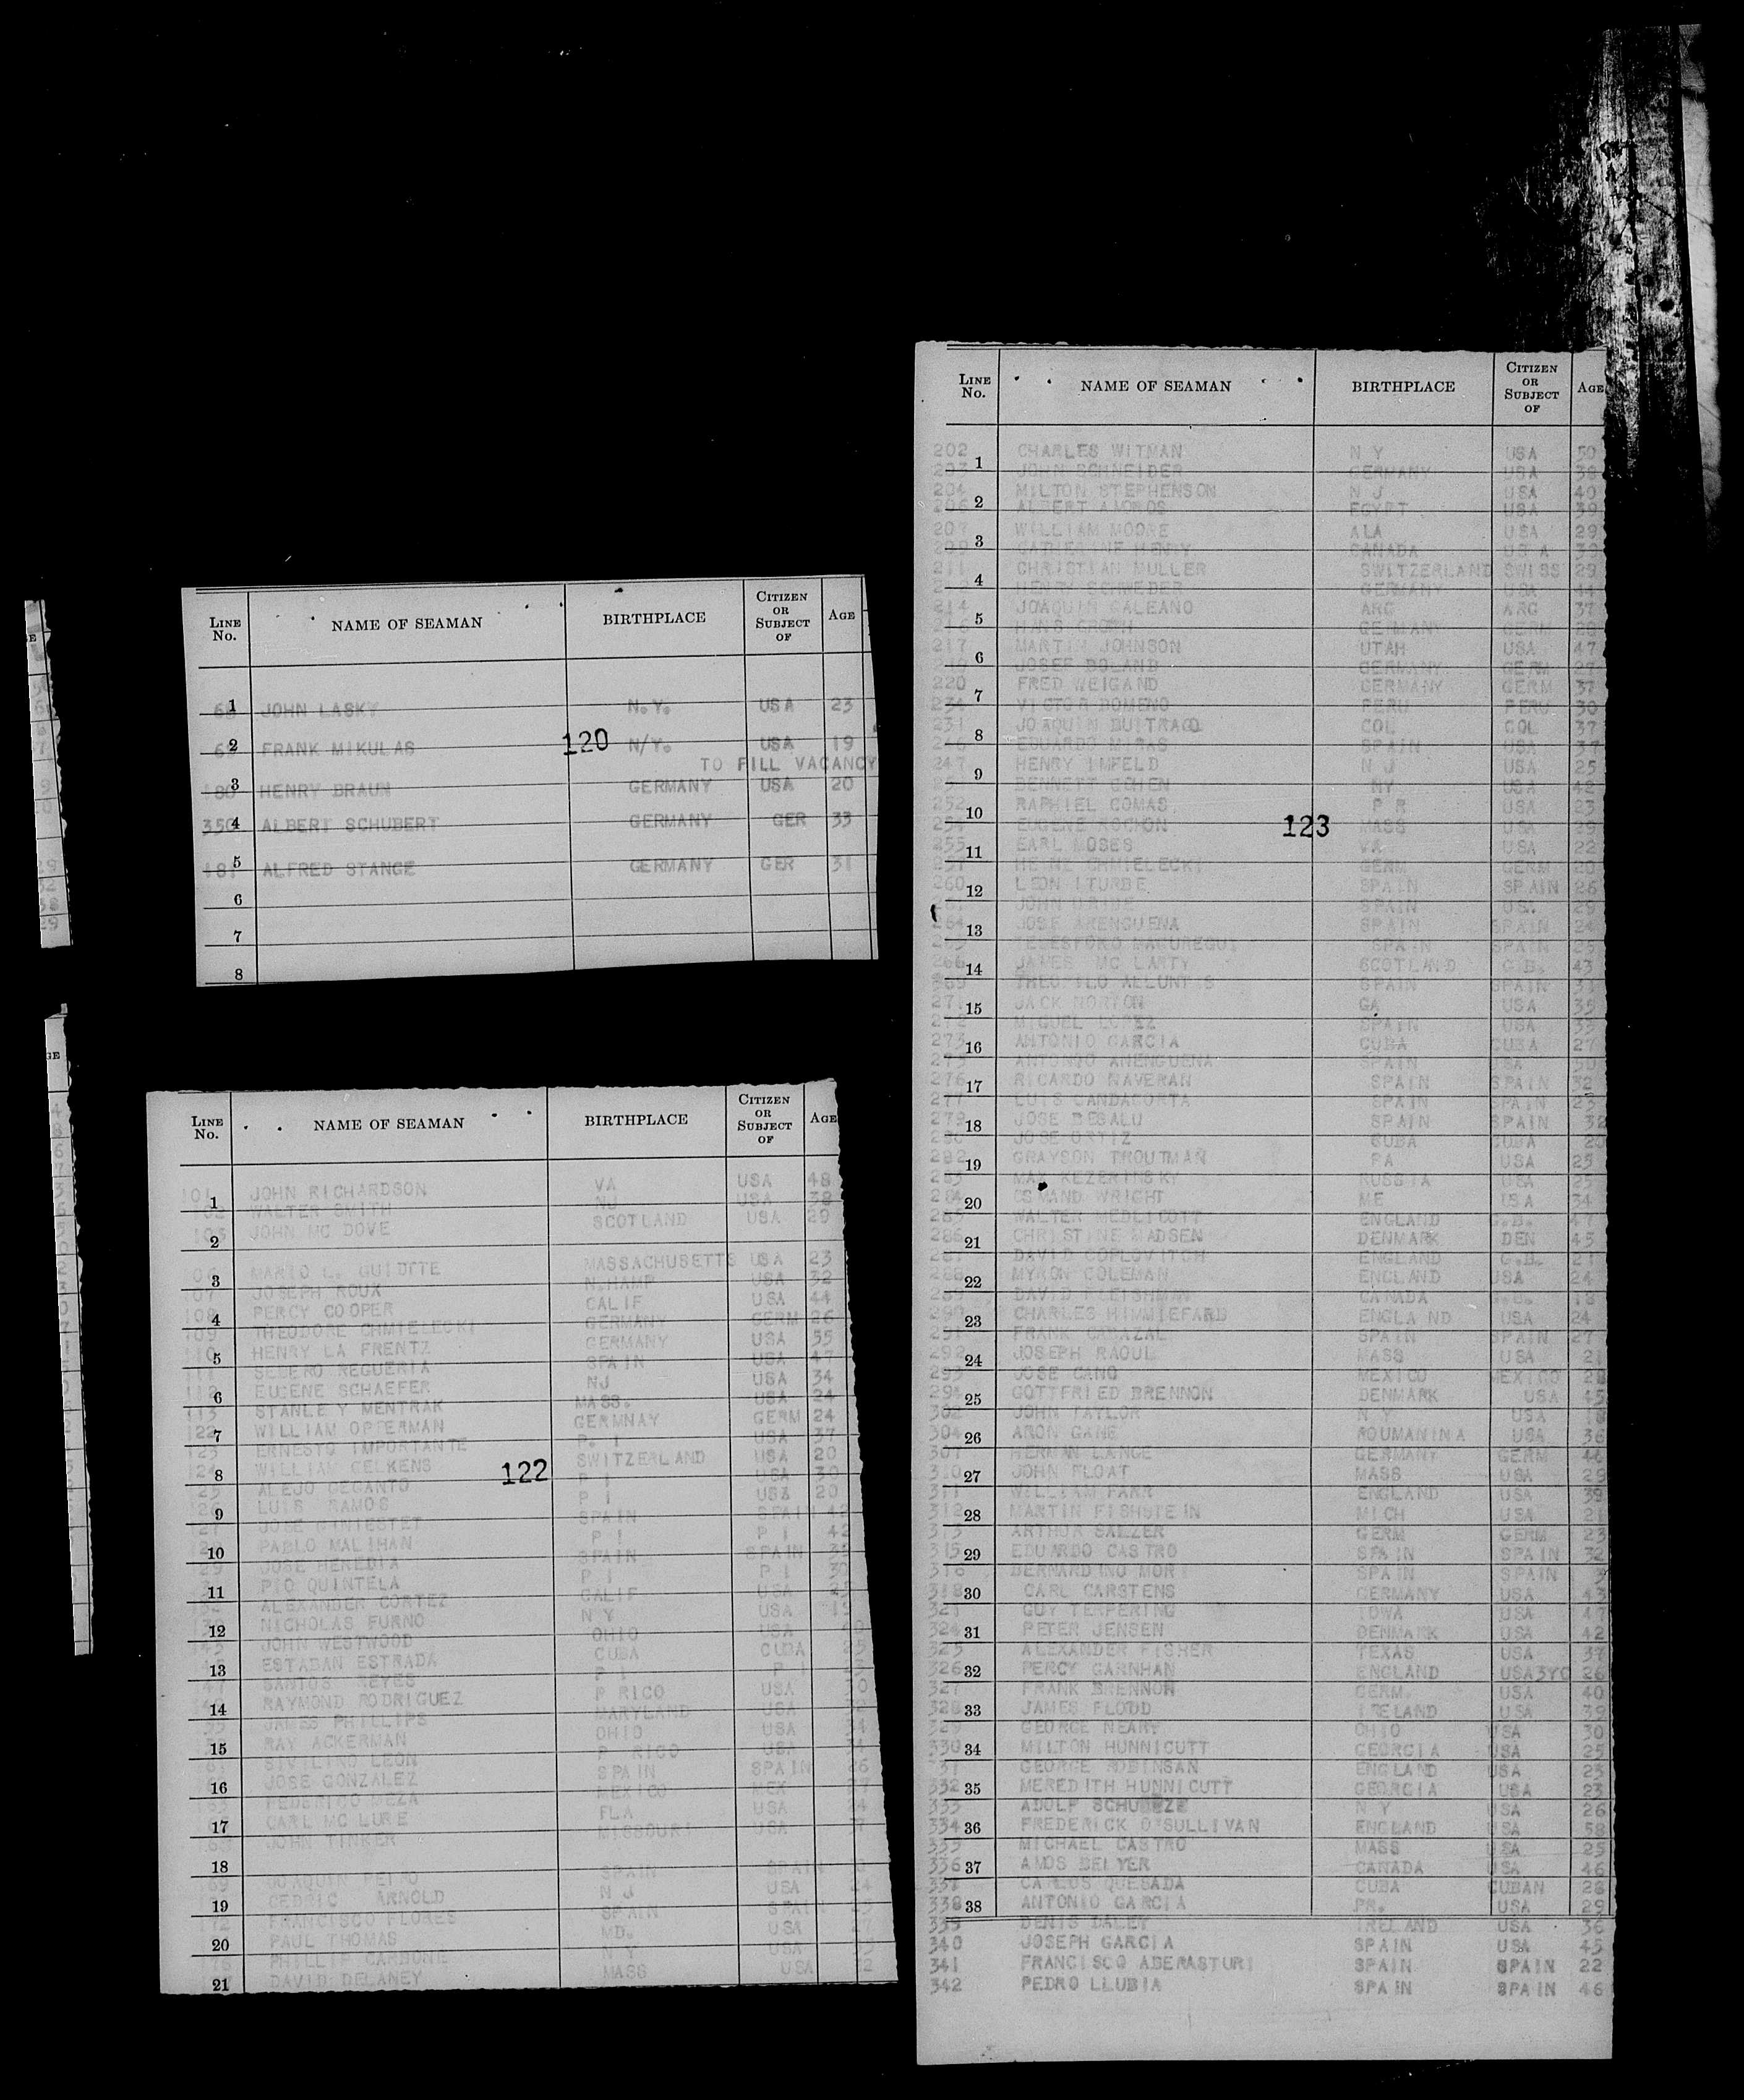 LINE No. NAME OF SEAMAN BIRTHPLACE CITIZEN OR SUBJECT OF AGE
1 JOHN LASKY N.Y. USA 23
2 FRANK MIKULAS 120 N/Y. USA 19
TO FILL VACANCY
3 180 HENRY BRAUN GERMANY USA 20
4 350 ALBERT SCHUBERT GERMANY GER 33
5 181 ALFRED STANGE GERMANY GER 31
6
7
8
LINE No. NAME OF SEAMAN BIRTHPLACE CITIZEN OR SUBJECT OF AGE
101 JOHN RICHARDSON VA USA 48
1 WALTER SMITH NJ USA 38
JOHN MC DOVE SCOTLAND USA 29
2
106 MARIO MASSACHUSETTS USA 23
3 107 JOSEPH ROUX N.HAMP USA 32
108 PERCY COOPER CALIF USA 44
4 109 THEODORE CHMIELECKI GERMANY GERM 26
110 HENRY LA FRENTZ GERMANY USA 55
5 111 SEBERO REGUERIA SPAIN USA 47
112 EUGENE SCHAEFER NJ USA 34
6 113 STANLEY MENTRAK MASS. USA 24
122 WILLIAM OPTERMAN GERMNAY GERM 24
7 123 ERNESTO IMPORTANTE P. I USA 37
124 WILLIAM GELKENS SWITZERLAND USA 20
8 ALEJO CECANTO 122 P I USA 30
LUIS RAMOS P I USA 20
9 JOSE SPAIN SPAIN 42
PABLO MALIHAN P I P I 42
10 JOSE HEREDIA SPAIN SPAIN
PIO QUINTELA P I P I 30
11 ALEXANDER CORTEZ CALIF USA
NICHOLAS FURNO N Y USA 19
12 JOHN WESTWOOD OHIO USA
ESTABAN ESTRADA CUBA CUBA 25
13 SANTOS REYES P I P I
RAYMOND RODRIGUEZ P RICO USA
14 JAMES PHILLIPS MARYLAND USA
RAY ACKERMAN OHIO USA
15 LEON P RICO USA
JOSE GONZALEZ SPAIN SPAIN 26
16 FEDERICO MEZA MEXICO MEX
CARL MC LURE FLA USA
17 JOHN TINKER MISSOURI USA
18 JOAQUIN SPAIN SPAIN
CEDRIC ARNOLD N J USA 24
19 FRANCISCO FLORES SPAIN SPAIN
PAUL THOMAS MD. USA
20 PHILLIP CARBONE N Y USA
21 DAVID DELANEY MASS USA
LINE No. NAME OF SEAMAN BIRTHPLACE CITIZEN OR SUBJECT OF AGE
202 CHARLES WITMAN N Y USA 50
1 203 JOHN SCHNEIDER GERMANY USA 38
204 MILTON STEPHENSON N J USA 40
2 206 ALBERT AMOROS EGYPT USA 39
207 WILLIAM MOORE ALA USA 29
3 CATHERINE HENRY CANADA USA 39
211 CHRISTIAN MULLER SWITZERLAND SWISS 29
4 HENRY SCHWEDER GERMANY USA 44
214 JOAQUIN GALEANO ARG ARG 37
5 HANS GROTH GERMANY GERM 28
217 MARTIN JOHNSON UTAH USA 47
6 JOSEF BOLAND GERMANY GERM 27
220 FRED WEIGAND GERMANY GERM 37
7 VICTOR DOMENO PERU PERU 30
231 JOAQUIN BUITRAGO COL COL 37
8 EDUARDO MIRAS SPAIN USA 37
247 HENRY IMFELD N J USA 25
9 BENNETT COHEN NY USA 42
252 RAPHIEL COMAS P R USA 23
10 254 EUGENE ROCHON 123 MASS USA 29
255 EARL MOSES VA USA 22
11 257 HEINZ CHMIELECKI GERM GERM 20
260 LEON ITURBE SPAIN SPAIN 26
12 JOHN URIBE SPAIN USA. 29
264 JOSE ARENGUENA SPAIN SPAIN 24
13 265 TELESFORO MACUREGUI SPAIN SPAIN 25
266 JAMES MC LARTY SCOTLAND G.B. 43
14 269 THEOFILO ALLUNTIS SPAIN SPAIN 31
271 JACK NORTON GA USA 35
15 272 MIGUEL LOPEZ SPAIN USA 33
273 ANTONIO GARCIA CUBA CUBA 27
16 275 ANTONIO ANENGUENA SPAIN USA 50
276 RICARDO NAVERAN SPAIN SPAIN 32
17 277 LUIS CANDAGORTA SPAIN SPAIN 23
279 JOSE BESALU SPAIN SPAIN 32
18 280 JOSE ORTIZ CUBA CUBA 20
282 GRAYSON TROUTMAN PA USA 25
19 283 MAX KEZERINSKY RUSSIA USA 25
284 OSMAND WRIGHT ME USA 34
20 285 WALTER MEDLICOTT ENGLAND G.B. 47
286 CHRISTINE MADSEN DENMARK DEN 45
21 287 DAVID COPLOVITCH ENGLAND G.B. 21
288 MYRON COLEMAN ENGLAND USA 24
22 289 DAVID FLEISHMAN CANADA G.B. 18
290 CHARLES HIMMIEFARB ENGLAND USA 24
23 291 FRANK CABAZAL SPAIN SPAIN 27
292 JOSEPH RAOUL MASS USA 21
24 293 JOSE CANO MEXICO MEXICO 28
294 GOTTFRIED BRENNON DENMARK USA 45
25 302 JOHN TAYLOR N Y USA 18
304 ARON GANE ROUMANINA USA 36
26 307 HERMAN LANGE GERMANY GERM 46
310 JOHN FLOAT MASS USA 29
27 311 WILLIAM FARR ENGLAND USA 39
312 MARTIN FISHSTEIN MICH USA 21
28 313 ARTHUR SALZER GERM GERM 23
315 EDUARDO CASTRO SPAIN SPAIN 32
29 316 BERNARDINO MORI SPAIN SPAIN
318 CARL CARSTENS GERMANY USA 43
30 321 GUY TERPERING IOWA USA 47
324 PETER JENSEN DENMARK USA 42
31 325 ALEXANDER FISHER TEXAS USA 37
326 PERCY GARNHAN ENGLAND USA3YC 26
32 327 FRANK BRENNON GERM. USA 40
328 JAMES FLOOD IRELAND USA 39
33 329 GEORGE NEARY OHIO USA 30
330 MILTON HUNNICUTT GEORGIA USA 25
34 331 GEORGE ROBINSAN ENGLAND USA 23
332 MEREDITH HUNNICUTT GEORGIA USA 23
35 333 ADOLF SCHULZE N Y USA 26
334 FREDERICK O'SULLIVAN ENGLAND USA 58
36 335 MICHAEL CASTRO MASS USA 25
336 AMOS BELYER CANADA USA 46
37 337 CARLOS QUESADA CUBA CUBAN 28
338 ANTONIO GARCIA PR. USA 29
38
339 DENIS DALEY IRELAND USA 36
340 JOSEPH GARCIA SPAIN USA 45
341 FRANCISCO ABERASTURI SPAIN SPAIN 22
342 PEDRO LLUBIA SPAIN SPAIN 46